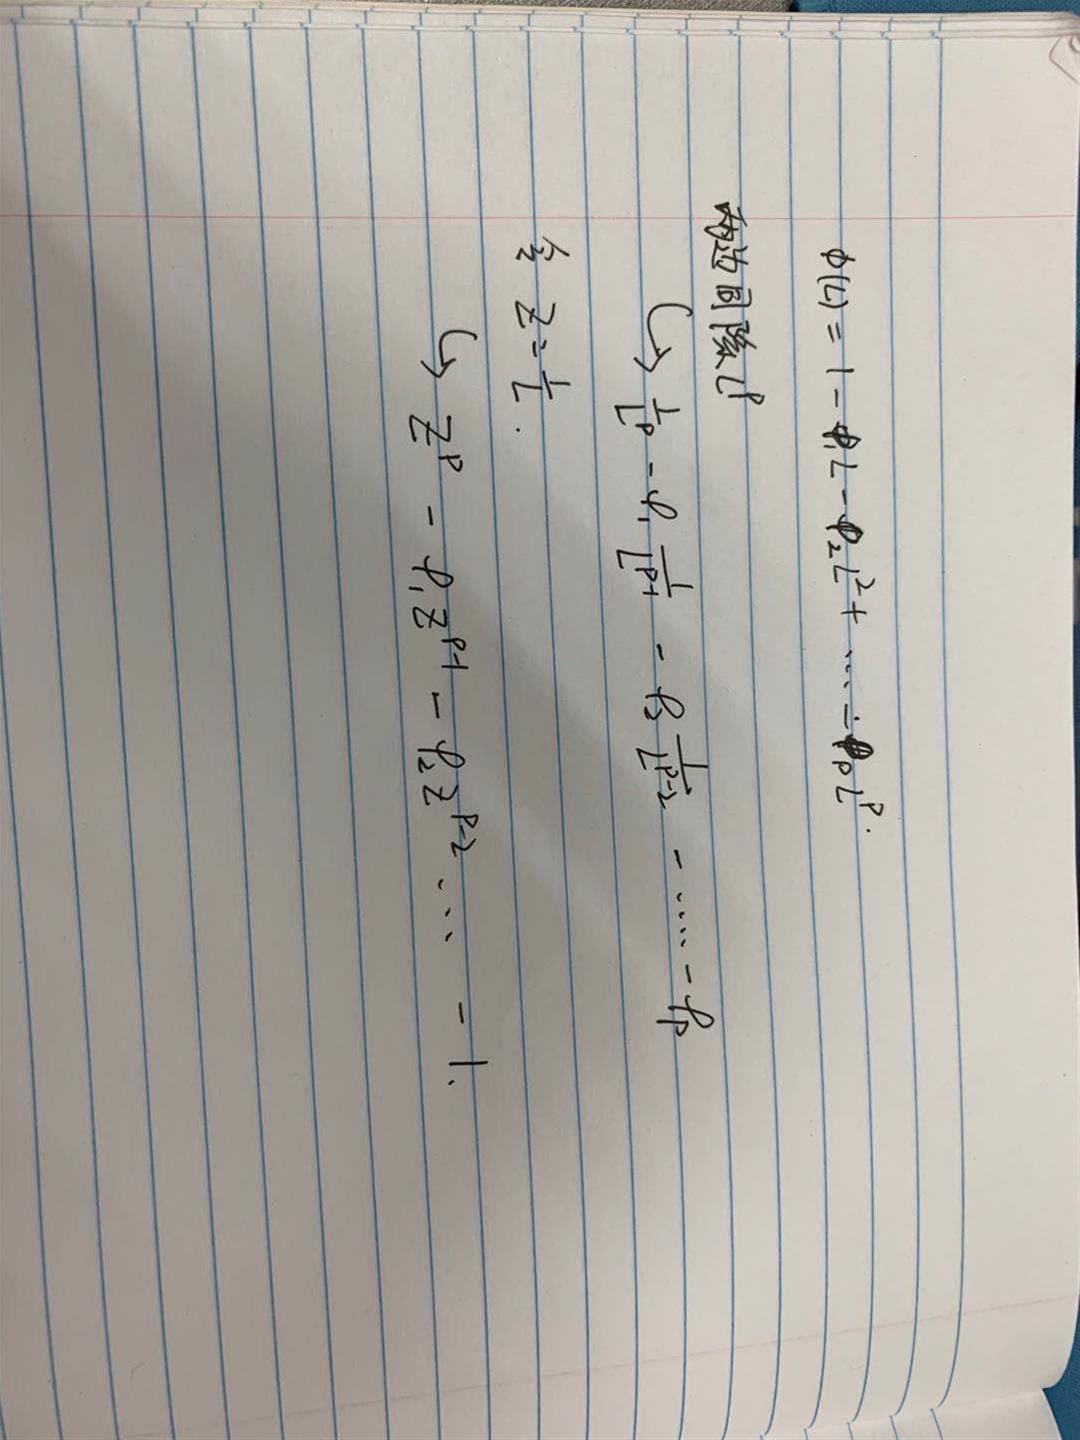 ϕ(L) = 1 - ϕ₁L - ϕ₂L² + ... - ϕₚLᵖ.
两边同除Lᵖ
↪ 1/Lᵖ - φ₁ 1/Lᵖ⁻¹ - φ₂ 1/Lᵖ⁻² - ..... - φₚ
令 Z = 1/L .
↪ Zᵖ - φ₁Zᵖ⁻¹ - φ₂Zᵖ⁻² ... - 1.